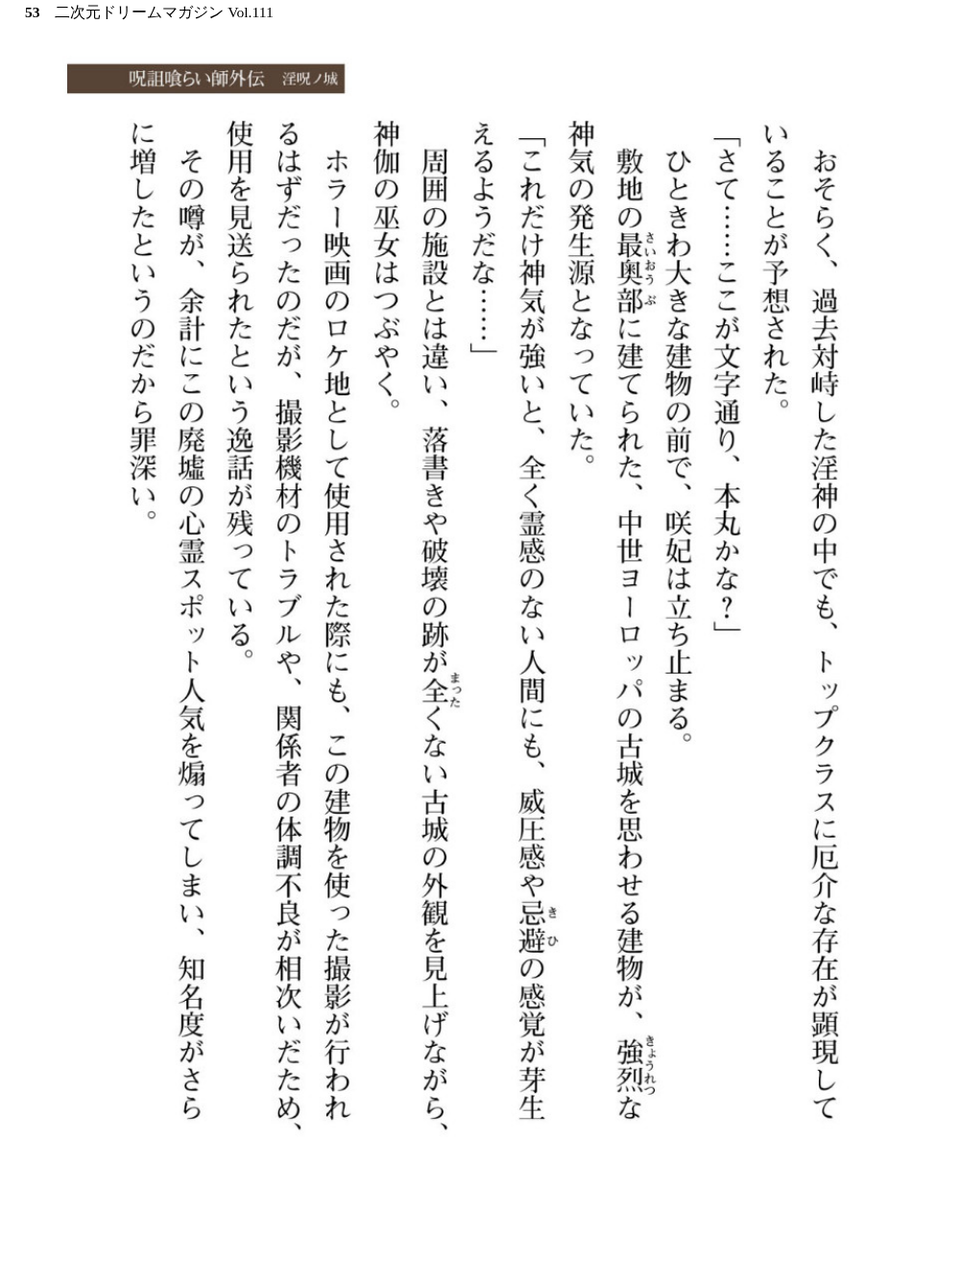 53 二次元ドリームマガジン Vol.111
呪詛喰らい師外伝 淫呪ノ城
おそらく、過去対峙した淫神の中でも、トップクラスに厄介な存在が顕現して
いることが予想された。
「さて……ここが文字通り、本丸かな？」
ひときわ大きな建物の前で、咲妃は立ち止まる。
敷地の最奥部に建てられた、中世ヨーロッパの古城を思わせる建物が、強烈な
さいおうぶ
きょうれつ
神気の発生源となっていた。
「これだけ神気が強いと、全く霊感のない人間にも、威圧感や忌避の感覚が芽生
きひ
えるようだな……」
周囲の施設とは違い、落書きや破壊の跡が全くない古城の外観を見上げながら、
まった
神伽の巫女はつぶやく。
ホラー映画のロケ地として使用された際にも、この建物を使った撮影が行われ
るはずだったのだが、撮影機材のトラブルや、関係者の体調不良が相次いだため、
使用を見送られたという逸話が残っている。
その噂が、余計にこの廃墟の心霊スポット人気を煽ってしまい、知名度がさら
に増したというのだから罪深い。